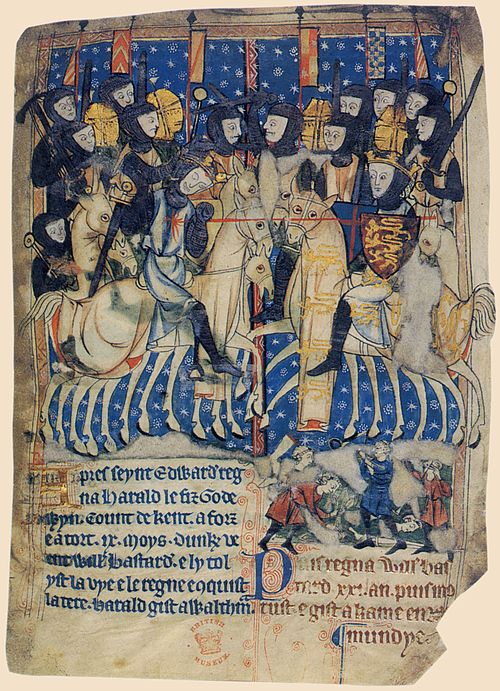 Apres seynt Edward reg
na harald le fiz Gode
wyn. Count de kent. a forz
e a tort. ix. moys. Dunk' ve
ent Will' bastard. e ly tol
yst la vye e le regne coquist
la tere. harald gist a Walthm
Puis regna Will' bas
tard. xxi. an. puis mo
rust e gist a kame en
mundye
BRITISH
MUSEUM